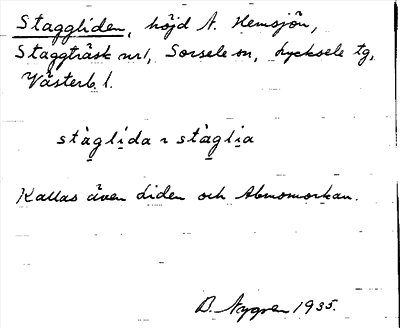 Staggliden, höjd N. Hemsjön,
Staggträsk nr 1, Sorsele sn, Lycksele tg,
Västerb. l.
stàglịda ~ stàg̣lịa
Kallas även Liden och Abmomorkan.
B. Nygren 1935.